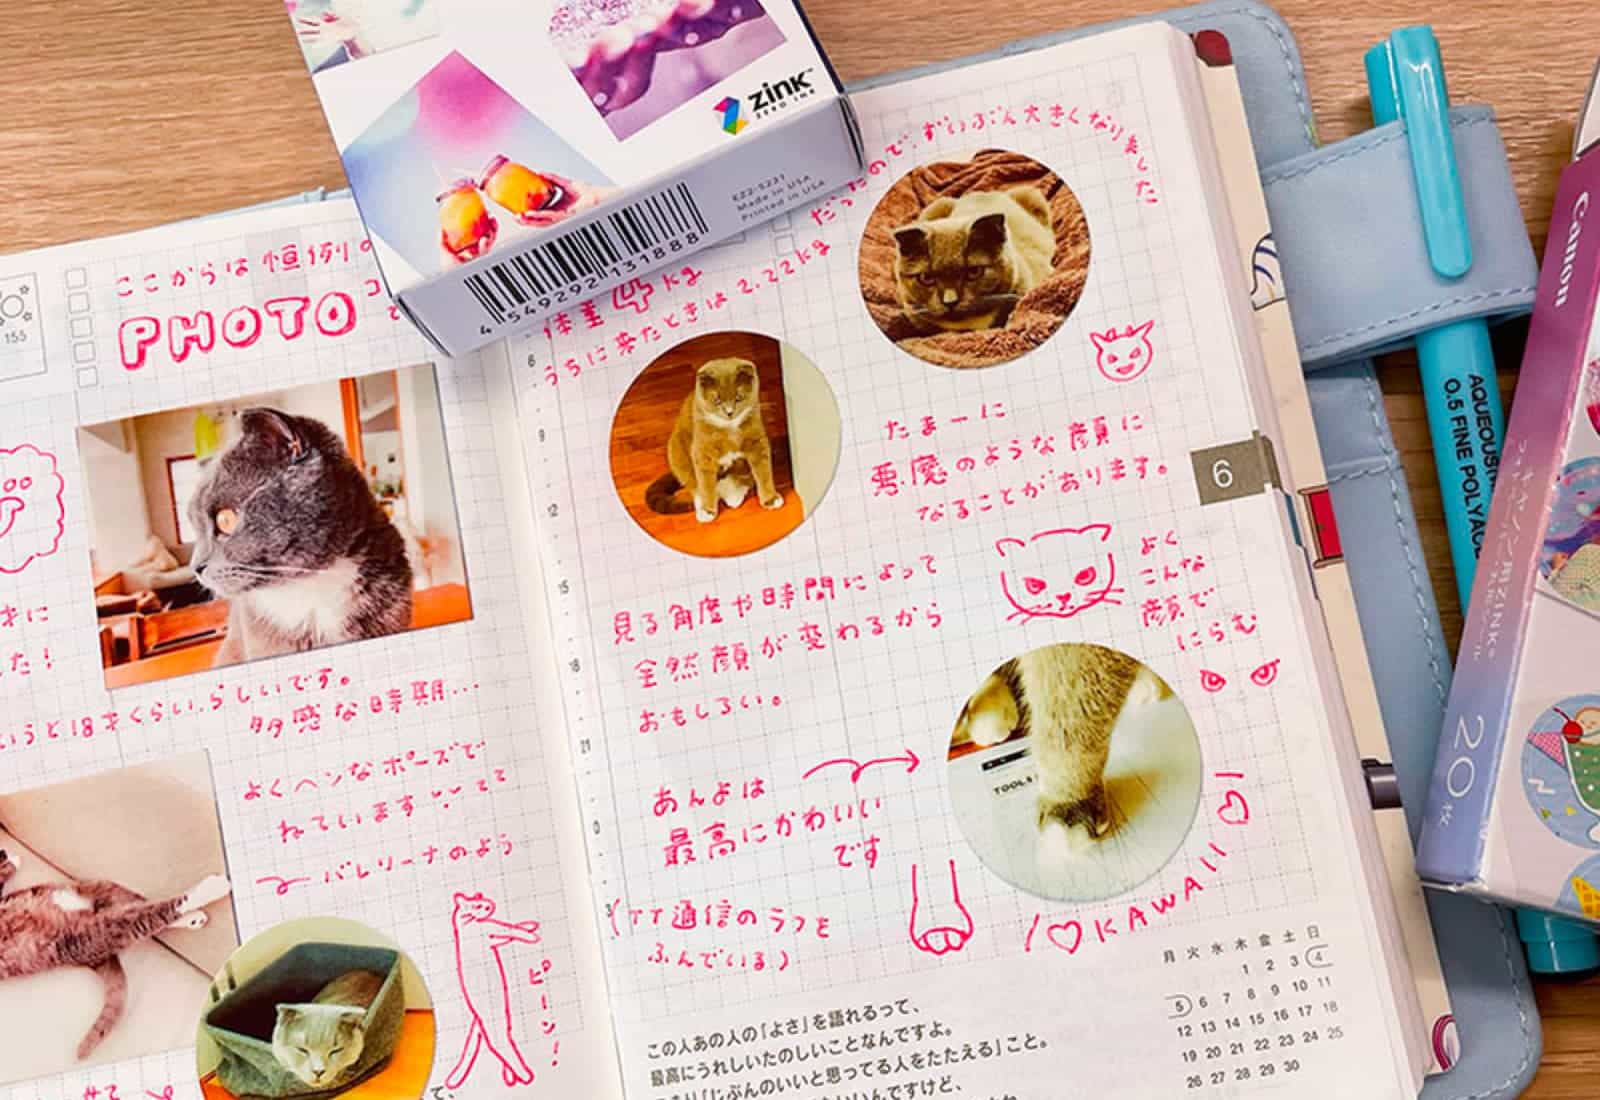 zink
ZERO INK
EZ2-5231
Made in USA
Printed in USA
4 549292 131888
155
ここからは恒例の
PHOTO コ
きに
た!
いうと18才くらい.らしいです。
多感な時期…
よくヘンなポーズで
ねています
バレリーナのよう
ピーン!
て、
体重4kg
うちに来たときは 2.22kg
だったので、ずいぶん大きくなりました
6
9
12
15
18
21
0
3
たまーに
悪魔のような顔に
なることがあります。
よく
こんな
顔で
にらむ
見る角度や時間によって
全然顔が変わるから
おもしろい。
あんよは
最高にかわいい
です
(TT通信のラフを
ふんでいる)
TOOLS
KAWAII
6
この人あの人の「よさ」を語れるって、
最高にうれしいたのしいことなんですよ。
「じぶんのいいと思ってる人をたたえる」こと。
いいんですけど、
月 火 水 木 金 土 日
1 2 3 4
5 6 7 8 9 10 11
12 13 14 15 16 17 18
19 20 21 22 23 24 25
26 27 28 29 30
AQUEOUS
0.5 FINE POLYA
Canon
キヤノン用ZINK®
20枚